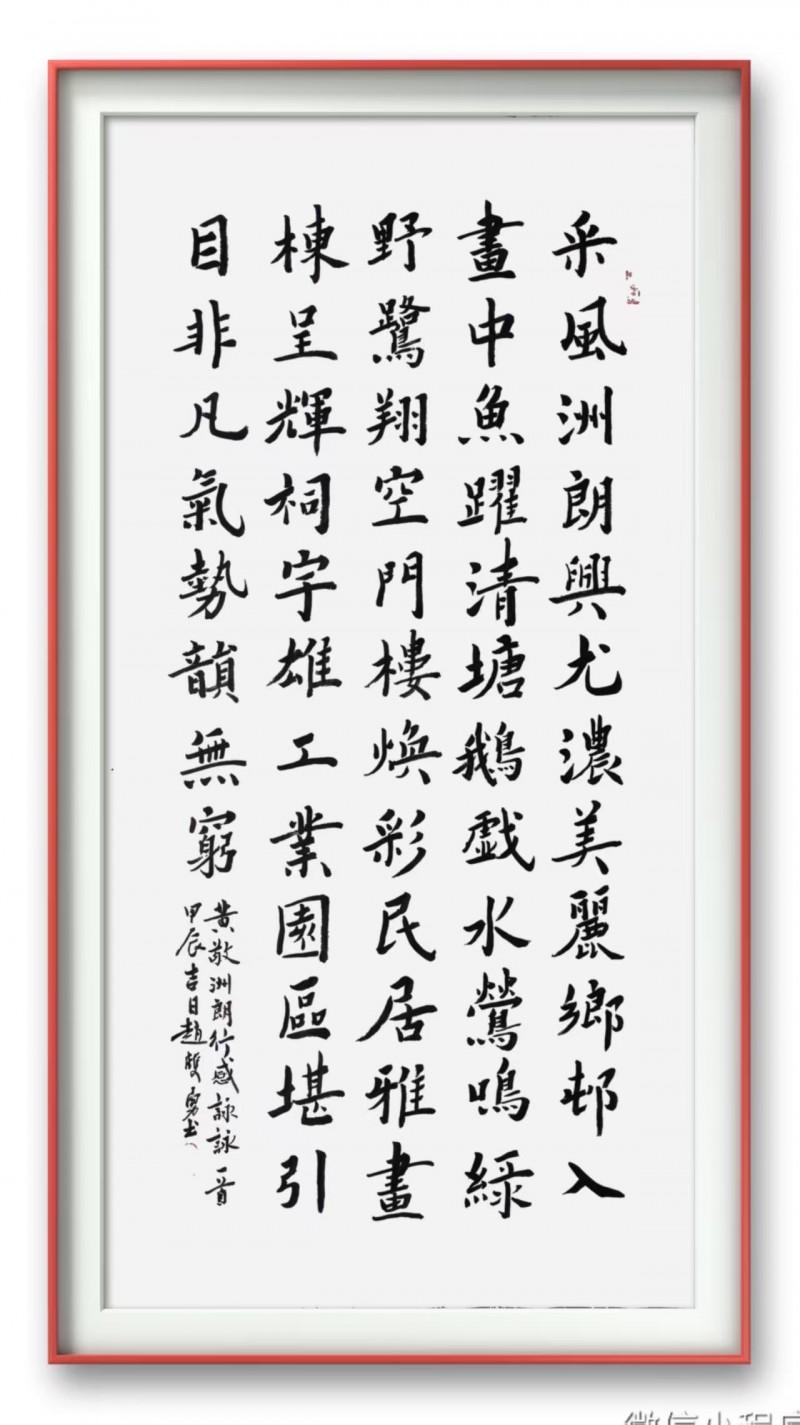 采風洲朗興尤濃美麗鄉邨入
畫中魚躍清塘鵝戯水鶯鳴綠
野鷺翔空門樓煥彩民居雅畫
棟呈輝祠宇雄工業園區堪引
目非凡氣勢韻無窮
黄敬洲朗行感詠詠一首
甲辰吉日趙雙勇书
微信小程序